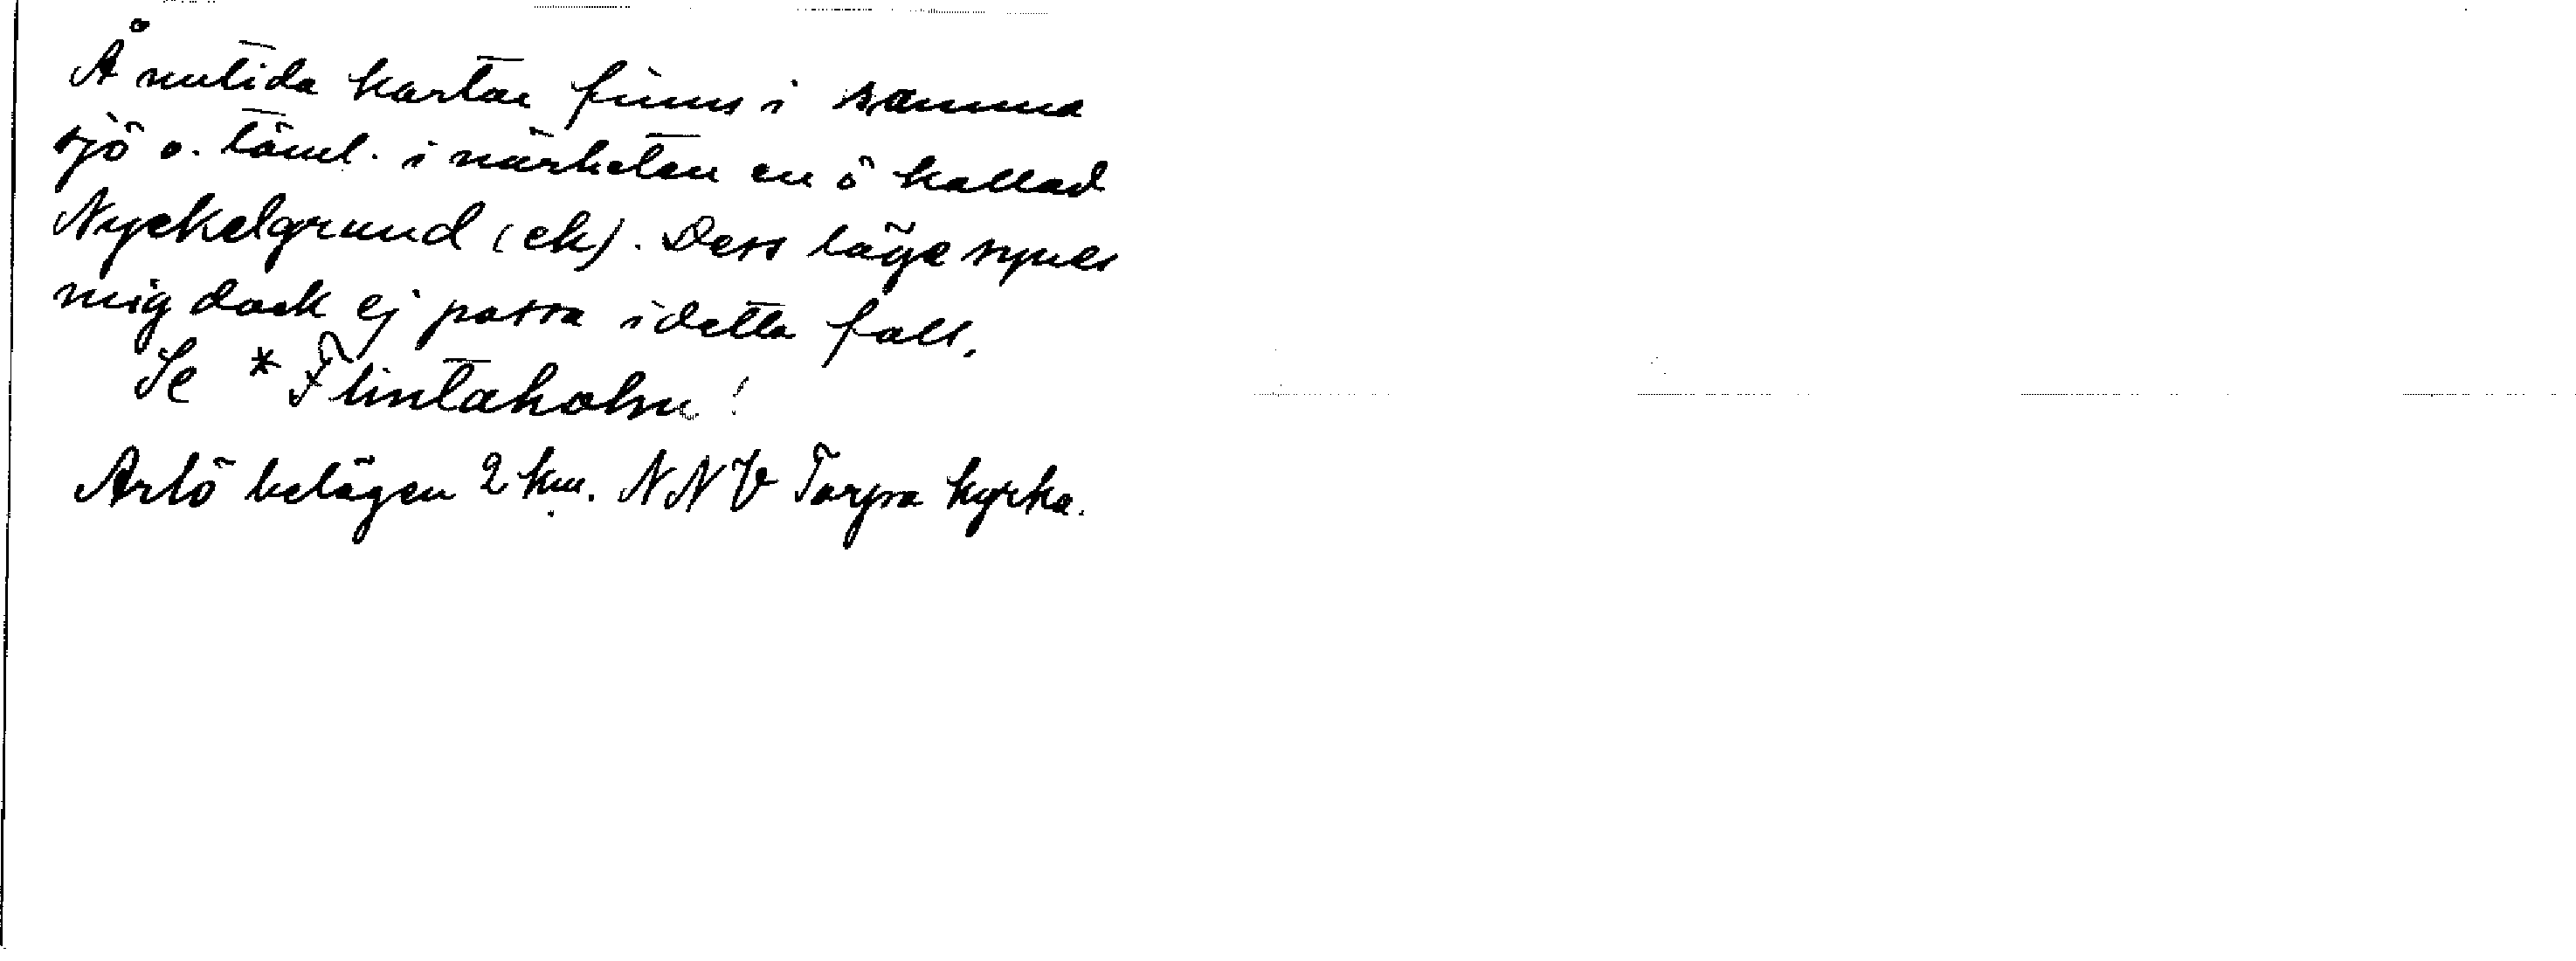 Å nutida kartor finns i samma
sjö o. täml. i närheten en ö kallad
Nyckelgrund (ek). Dess läge synes
mig dock ej passa i detta fall.
Se * Flintaholm!
Arlö belägen 2 km. NNV Torpa kyrka.